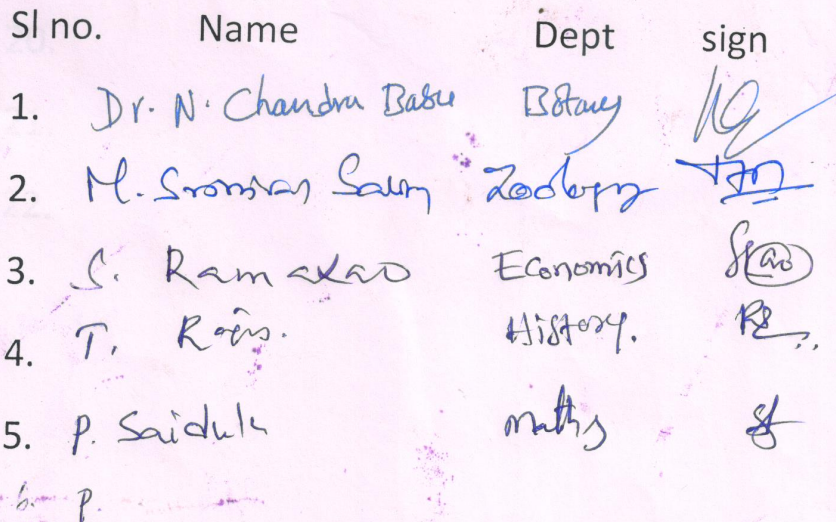 Sl no. Name Dept sign
1. Dr. N. Chandra Babu Botany
2. M. Srinivas Zoology
3. S. Ramarao Economics
4. T. History.
5. P. Saidulu maths
6. P.